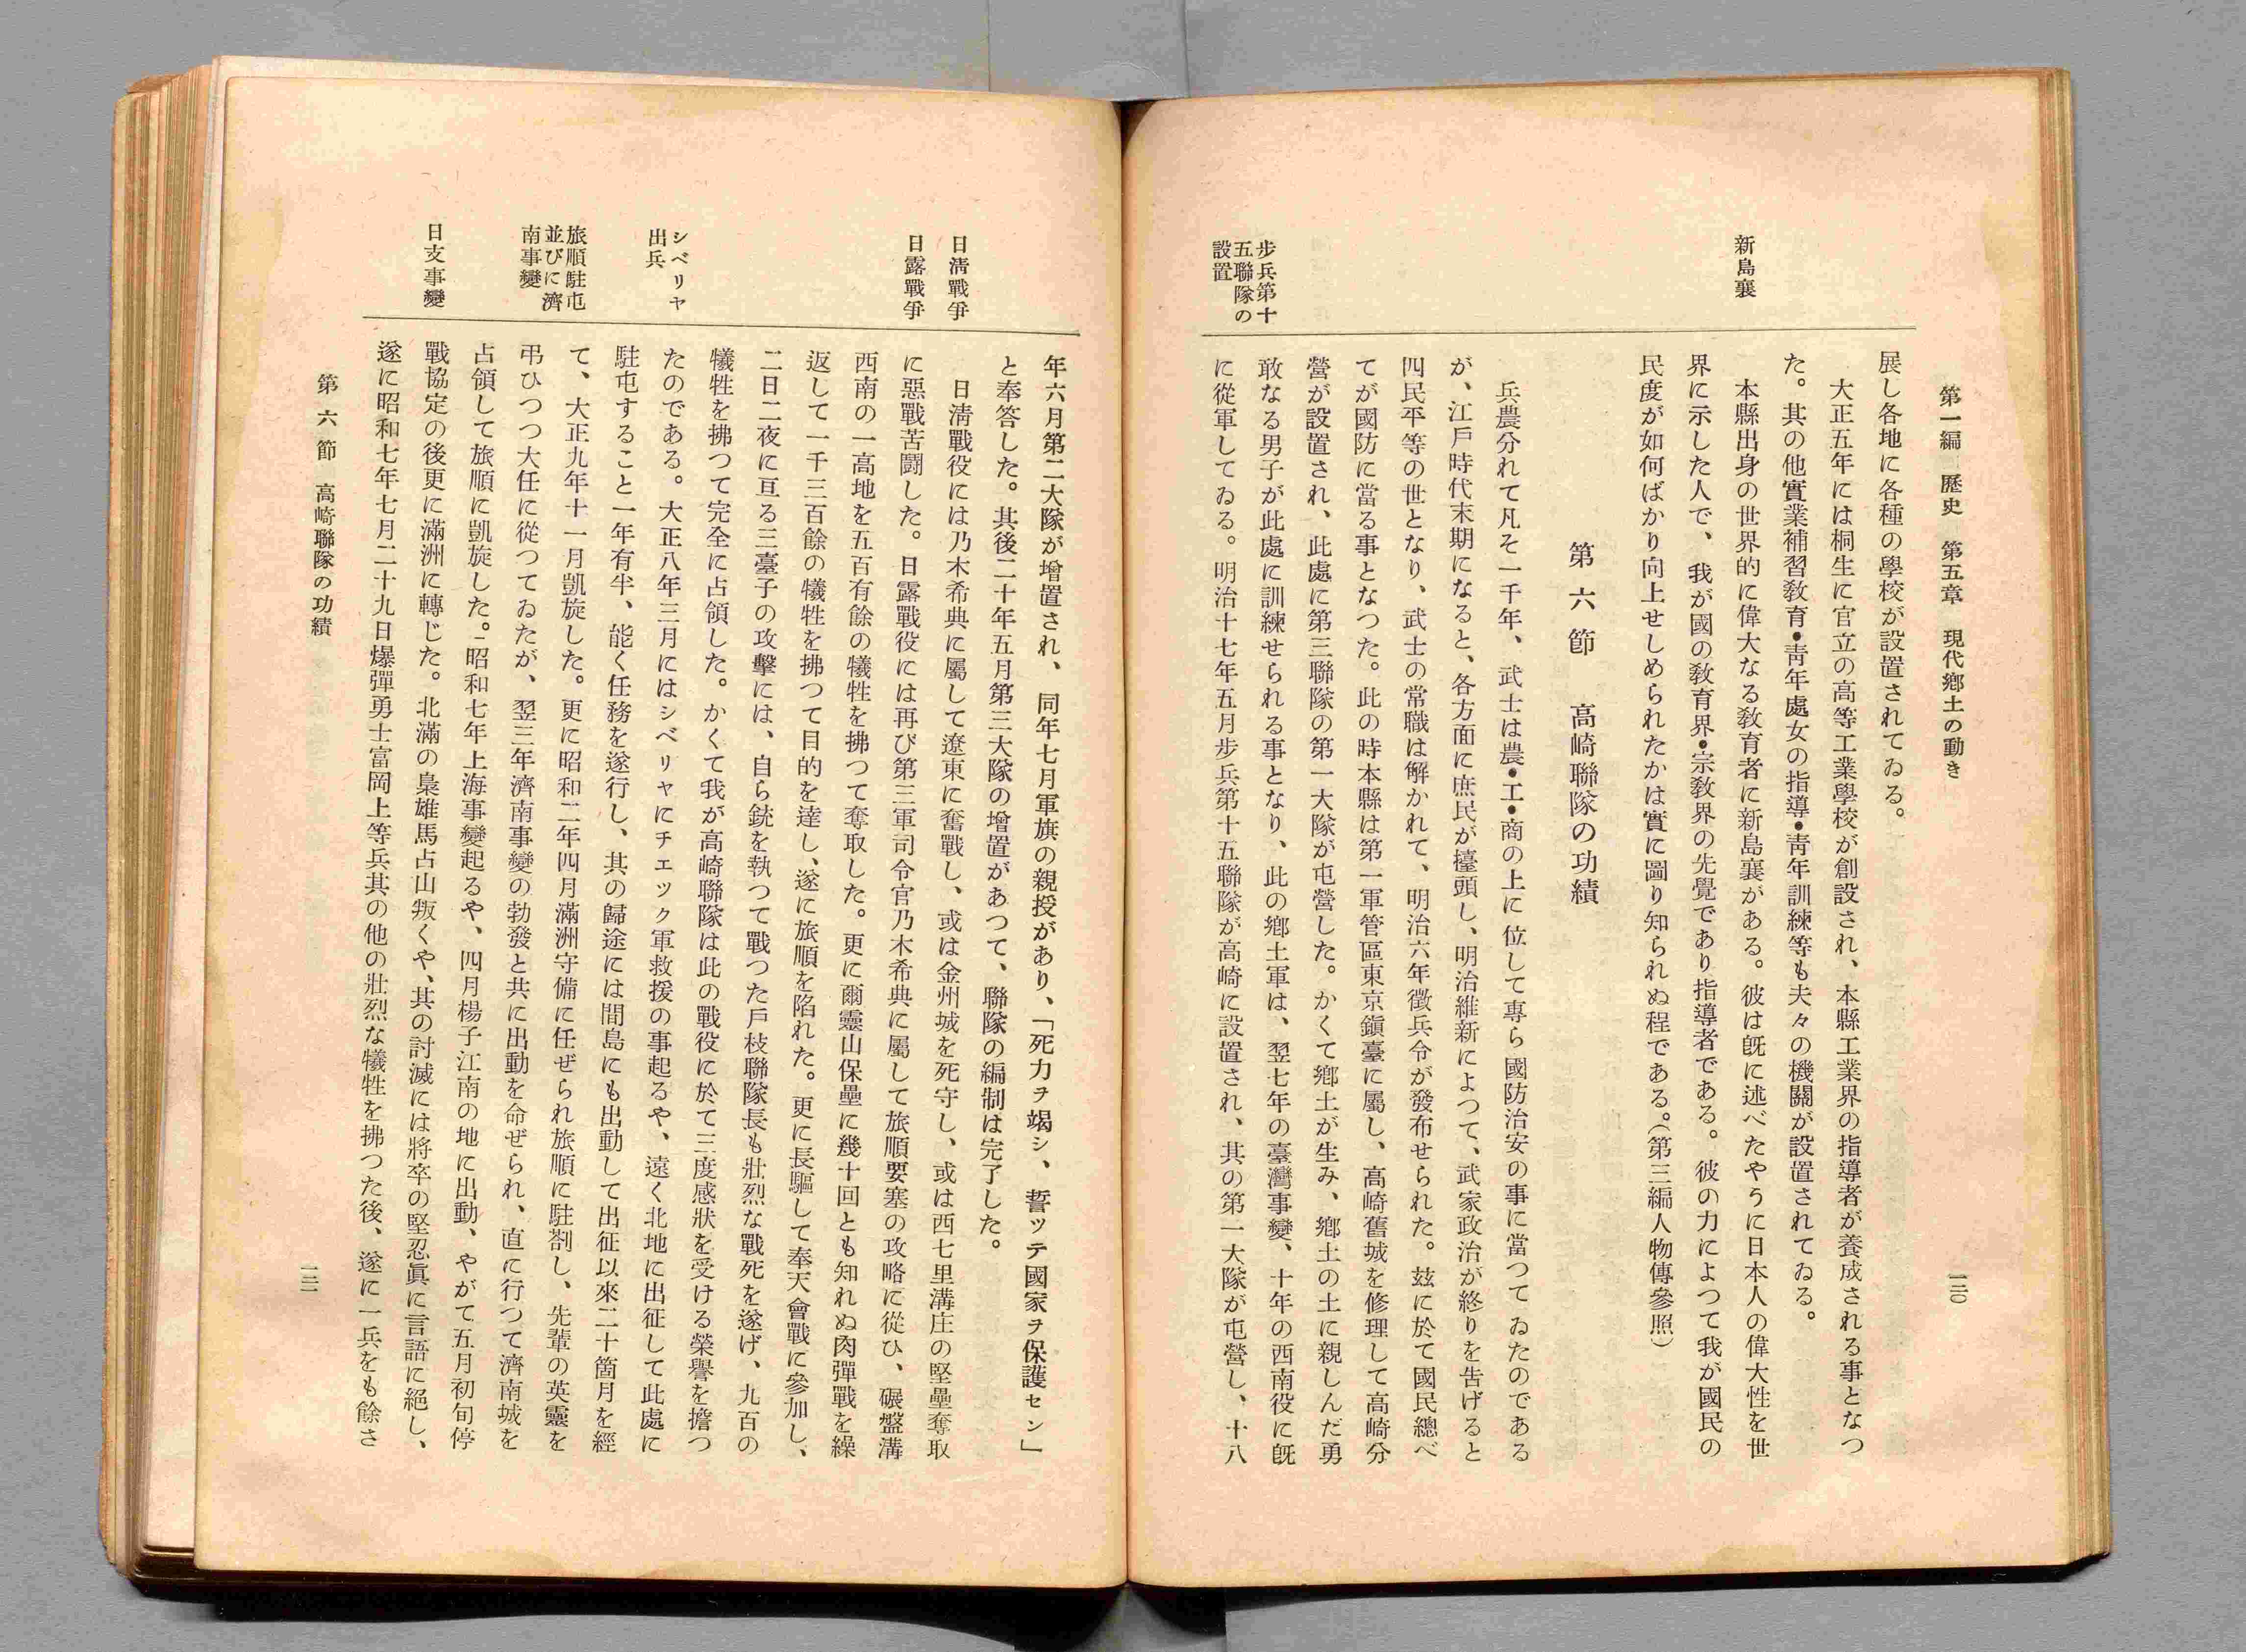 第一編 歷史 第五章 現代鄕土の動き
一二〇
新島襄
步兵第十
五聯隊の
設置
展し各地に各種の學校が設置されてゐる。
大正五年には桐生に官立の高等工業學校が創設され、本縣工業界の指導者が養成される事となつ
た。其の他實業補習敎育・靑年處女の指導・靑年訓練等も夫々の機關が設置されてゐる。
本縣出身の世界的に偉大なる敎育者に新島襄がある。彼は旣に述べたやうに日本人の偉大性を世
界に示した人で、我が國の敎育界・宗敎界の先覺であり指導者である。彼の力によつて我が國民の
民度が如何ばかり向上せしめられたかは實に圖り知られぬ程である。(第三編人物傳參照)
第六節 高崎聯隊の功績
兵農分れて凡そ一千年、武士は農・工・商の上に位して專ら國防治安の事に當つてゐたのである
が、江戶時代末期になると、各方面に庶民が擡頭し、明治維新によつて、武家政治が終りを吿げると
四民平等の世となり、武士の常職は解かれて、明治六年徵兵令が發布せられた。玆に於て國民總べ
てが國防に當る事となつた。此の時本縣は第一軍管區東京鎭臺に屬し、高崎舊城を修理して高崎分
營が設置され、此處に第三聯隊の第一大隊が屯營した。かくて鄕土が生み、鄕土の土に親しんだ勇
敢なる男子が此處に訓練せられる事となり、此の鄕土軍は、翌七年の臺灣事變、十年の西南役に旣
に從軍してゐる。明治十七年五月步兵第十五聯隊が高崎に設置され、其の第一大隊が屯營し、十八
日淸戰爭
日露戰爭
シベリヤ
出兵
旅順駐屯
並びに濟
南事變
日支事變
年六月第二大隊が增置され、同年七月軍旗の親授があり、「死力ヲ竭シ、誓ッテ國家ヲ保護セン」
と奉答した。其後二十年五月第三大隊の增置があつて、聯隊の編制は完了した。
日淸戰役には乃木希典に屬して遼東に奮戰し、或は金州城を死守し、或は西七里溝庄の堅壘奪取
に惡戰苦鬪した。日露戰役には再び第三軍司令官乃木希典に屬して旅順要塞の攻略に從ひ、碾盤溝
西南の一高地を五百有餘の犧牲を拂つて奪取した。更に爾靈山保壘に幾十回とも知れぬ肉彈戰を繰
返して一千三百餘の犧牲を拂つて目的を達し、遂に旅順を陷れた。更に長驅して奉天會戰に參加し、
二日二夜に亘る三臺子の攻擊には、自ら銃を執つて戰つた戶枝聯隊長も壯烈な戰死を遂げ、九百の
犧牲を拂つて完全に占領した。かくて我が高崎聯隊は此の戰役に於て三度感狀を受ける榮譽を擔つ
たのである。大正八年三月にはシベリヤにチエック軍救援の事起るや、遠く北地に出征して此處に
駐屯すること一年有半、能く任務を遂行し、其の歸途には間島にも出動して出征以來二十箇月を經
て、大正九年十一月凱旋した。更に昭和二年四月滿洲守備に任ぜられ旅順に駐剳し、先輩の英靈を
弔ひつつ大任に從つてゐたが、翌三年濟南事變の勃發と共に出動を命ぜられ、直に行つて濟南城を
占領して旅順に凱旋した。昭和七年上海事變起るや、四月楊子江南の地に出動、やがて五月初旬停
戰協定の後更に滿洲に轉じた。北滿の梟雄馬占山叛くや、其の討滅には將卒の堅忍眞に言語に絕し、
遂に昭和七年七月二十九日爆彈勇士富岡上等兵其の他の壯烈な犧牲を拂つた後、遂に一兵をも餘さ
第六節 高崎聯隊の功績
一二一